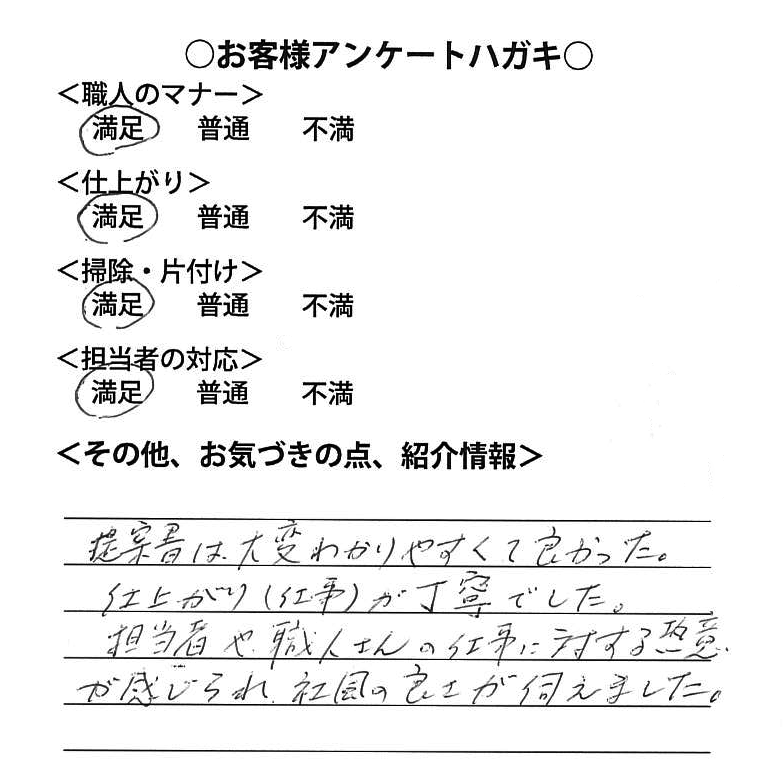 ○お客様アンケートハガキ○
＜職人のマナー＞
満足 普通 不満
＜仕上がり＞
満足 普通 不満
＜掃除・片付け＞
満足 普通 不満
＜担当者の対応＞
満足 普通 不満
＜その他、お気づきの点、紹介情報＞
提案書は、大変わかりやすくて良かった。
仕上がり(仕事)が丁寧でした。
担当者や、職人さんの仕事に対する熱意
が感じられ、社風の良さが伺えました。